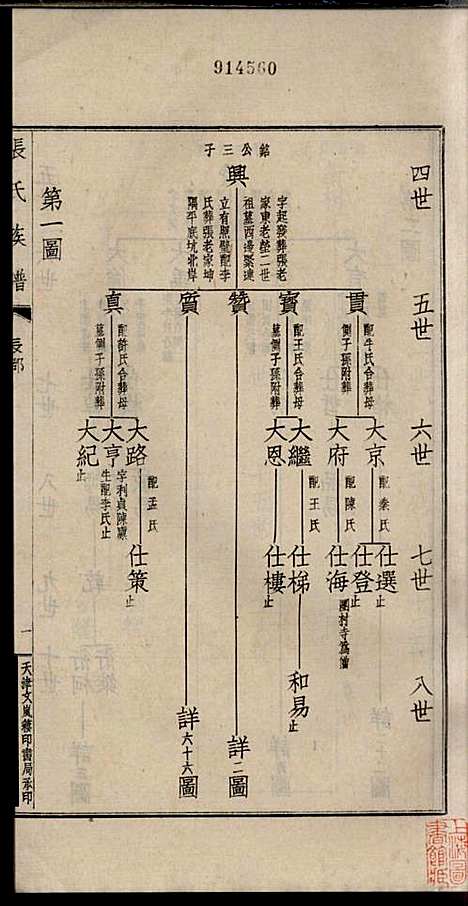 914560
四世
五世
六世
七世
八世
銘公三子
興
字起發葬張老
家東老塋二世
祖墓西邊緊連
立有照壁配李
氏葬張老家坤
隅平底坑北岸
貫
配牛氏合葬母
側子孫附葬
大京
配秦氏
仕選止
仕登止
大府
配陳氏
仕海
圍村寺爲僧
寳
配王氏合葬母
墓側子孫附葬
大繼
配王氏
仕梯
和易止
大恩
仕樓止
贊
詳二圖
質
詳六十六圖
真
配許氏合葬母
墓側子孫附葬
大路
配孟氏
仕策止
大亨
字利貞陳廩
生配李氏止
大紀止
第一圖
張氏族譜
長部
一
天津文嵐簃印書局承印
上海圖書館藏